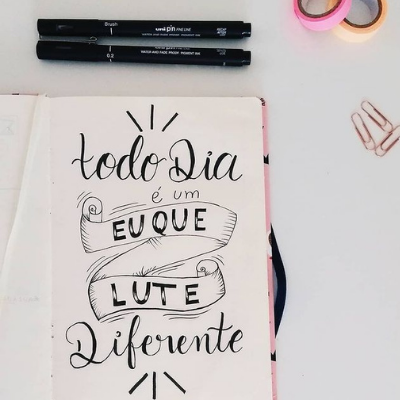 Brush
uni pin FINE LINE
0.2
todo Dia
é um
EU QUE
LUTE
Diferente